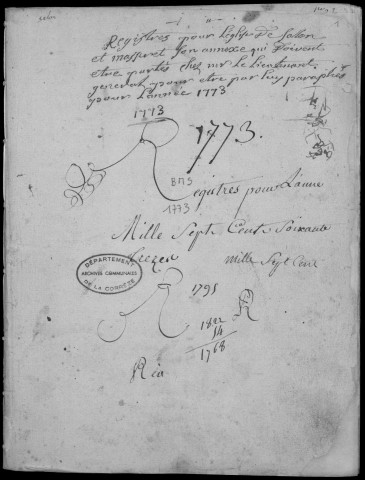 Registres pour Leglise De Salon
et masseret son annexe qui Doivent
etre portés chez mr le Lieutenant
general pour etre par luy paraphés
pour L'année 1773
1773
1773.
BMS
1773
Registres pour L'anne
Mille Sept Cent Soixante
Trezeu
Mille Sept Cent
DÉPARTEMENT
ARCHIVES COMMUNALES
DE LA CORRÈZE
R
1795
R
1822
54
1768